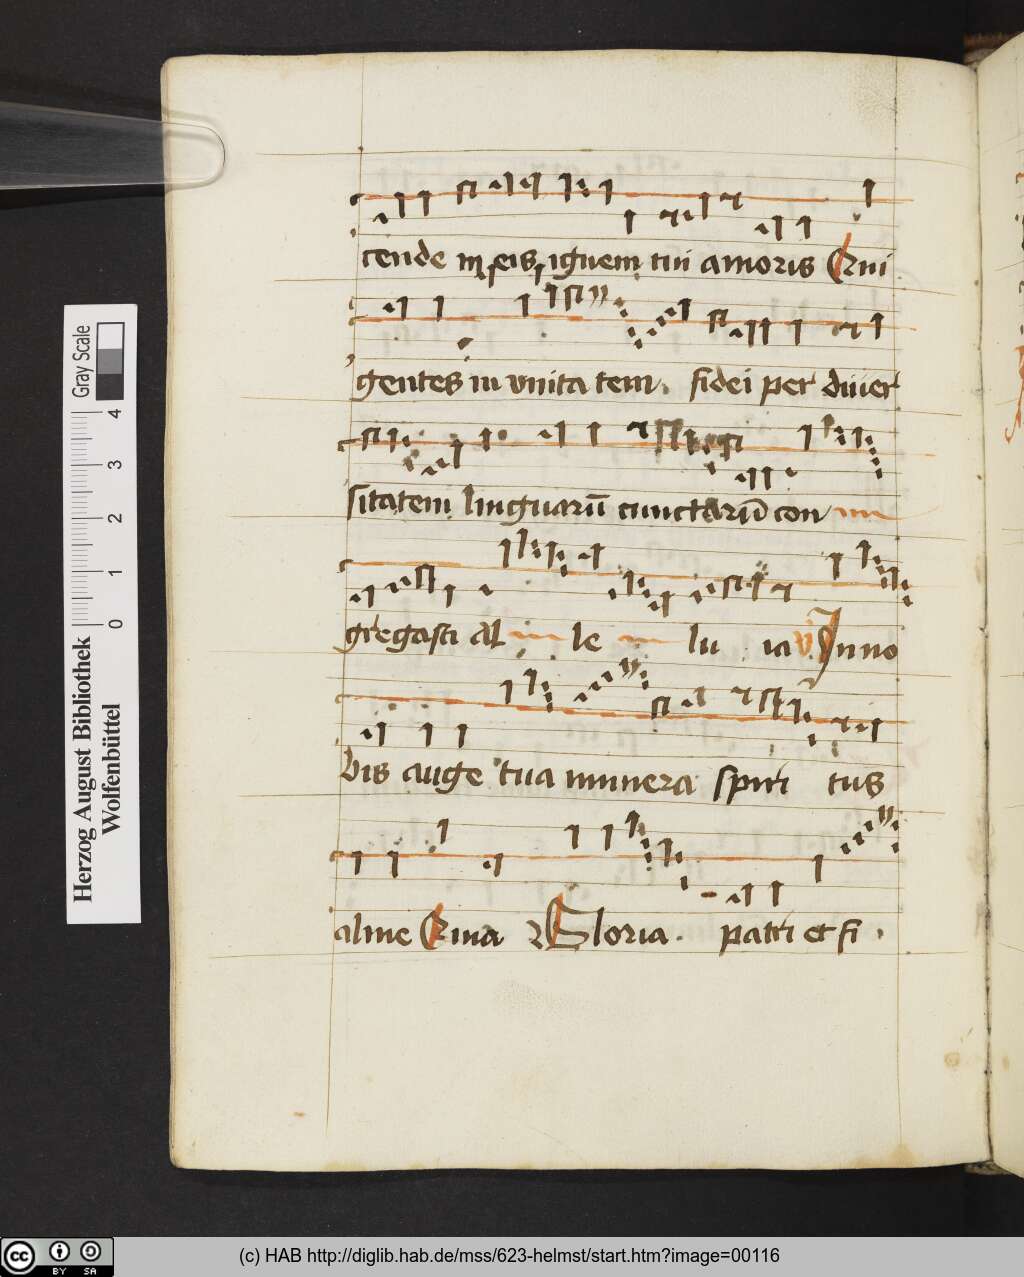 cende in eis ignem tui amoris Qui
gentes in vnita tem. fidei per diuer
sitatem linguarū cunctarū con
gregasti Al le lu ia V. Inno
bis auge tua munera spiri tus
alme Gloria. patri et fi.
Gray Scale
4 3 2 1 0
Herzog August Bibliothek
Wolfenbüttel
cc BY SA
(c) HAB http://diglib.hab.de/mss/623-helmst/start.htm?image=00116